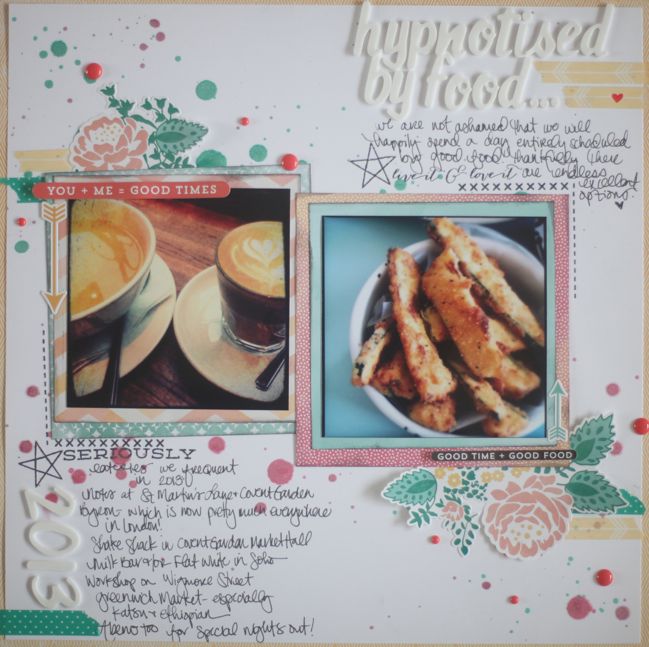 hypnotised
by food...
we are not ashamed that we will
happily spend a day entirely scheduled
by good food. thankfully there
are endless
excellent
options.
YOU + ME = GOOD TIMES
GOOD TIME + GOOD FOOD
SERIOUSLY
eateries we frequent
in 2013!
Motors at St Martins Lane + Covent Garden
Byron - which is now pretty much everywhere
in London!
Shake Shack in Covent Garden Market Hall
Milk Bar for Flat White in Soho
Workshop on Wigmore Street
Greenwich Market - especially
Katsu + Ethiopian
Abeno too for special nights out!
2013